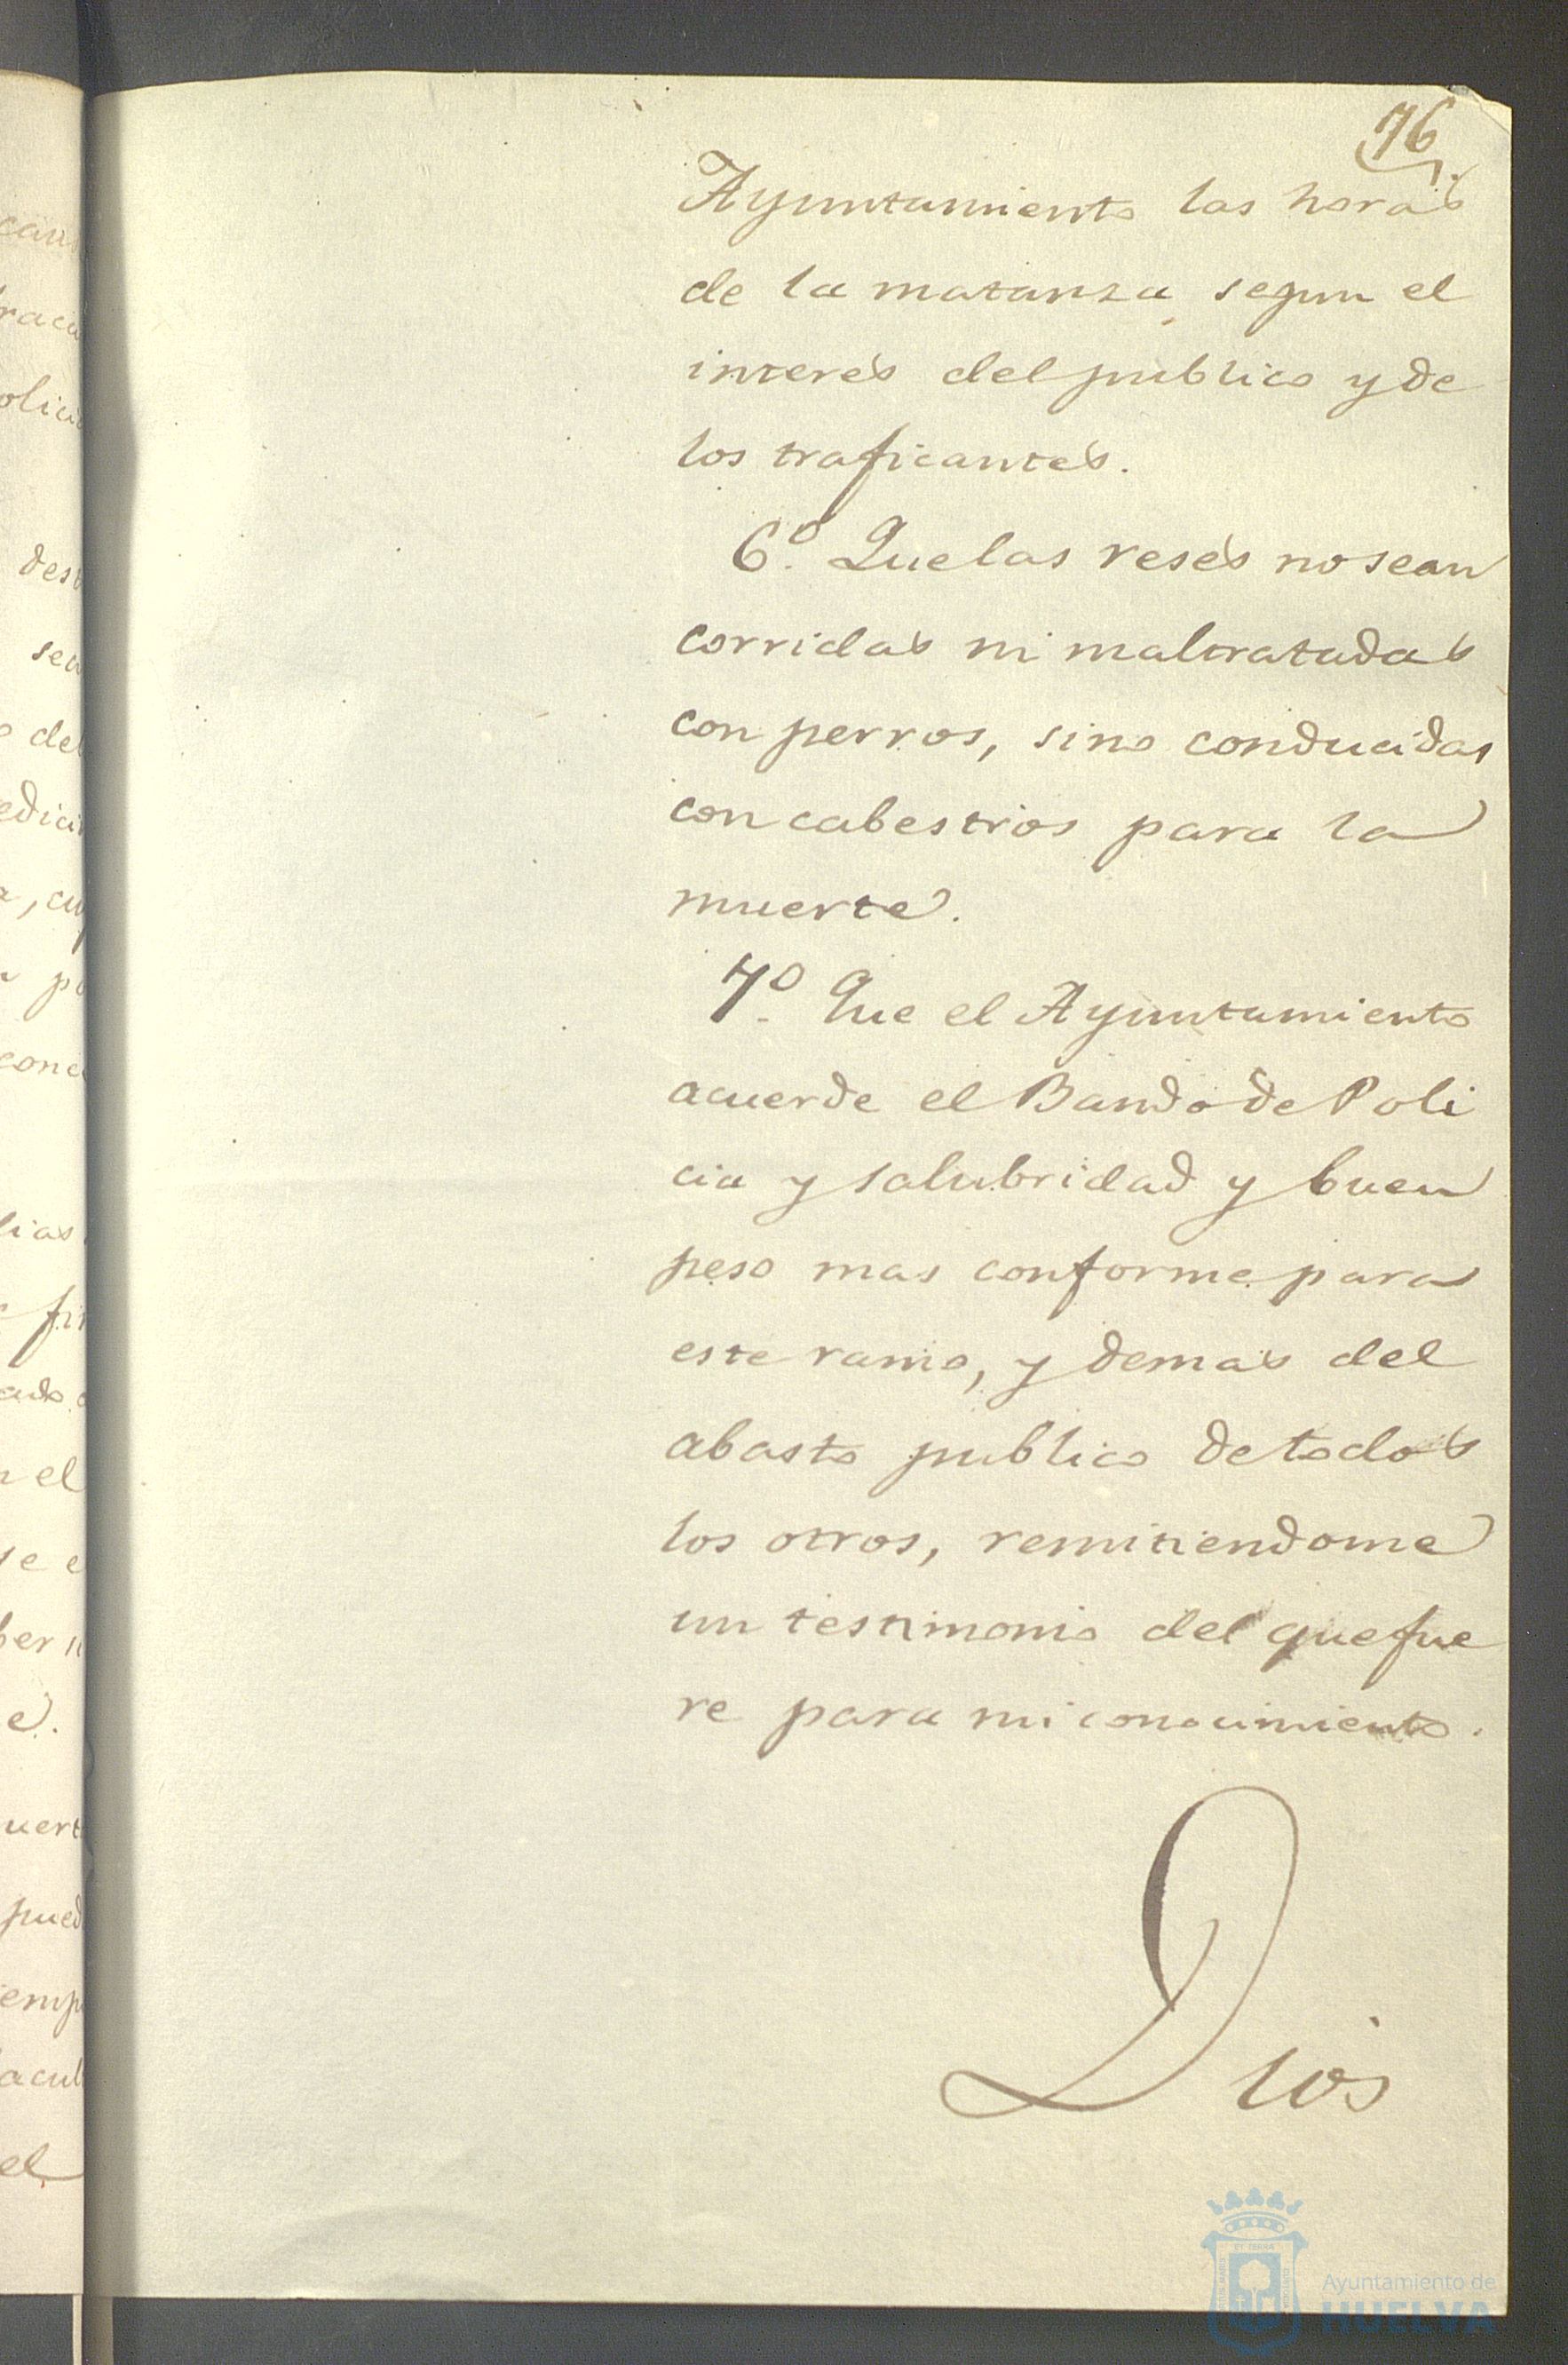 76
Ayuntamiento las horas
de la matanza segun el
interes del publico y de
los traficantes.
6.º Que las reses no sean
corridas ni maltratadas
con perros, sino conducidas
con cabestros para la
muerte.
7.º Que el Ayuntamiento
acuerde el Bando de Poli
cia y salubridad y buen
peso mas conforme para
este ramo, y demas del
abasto publico de todos
los otros, remitiendome
un testimonio del que fue
re para mi conocimiento.
Dios
Ayuntamiento de
HUELVA